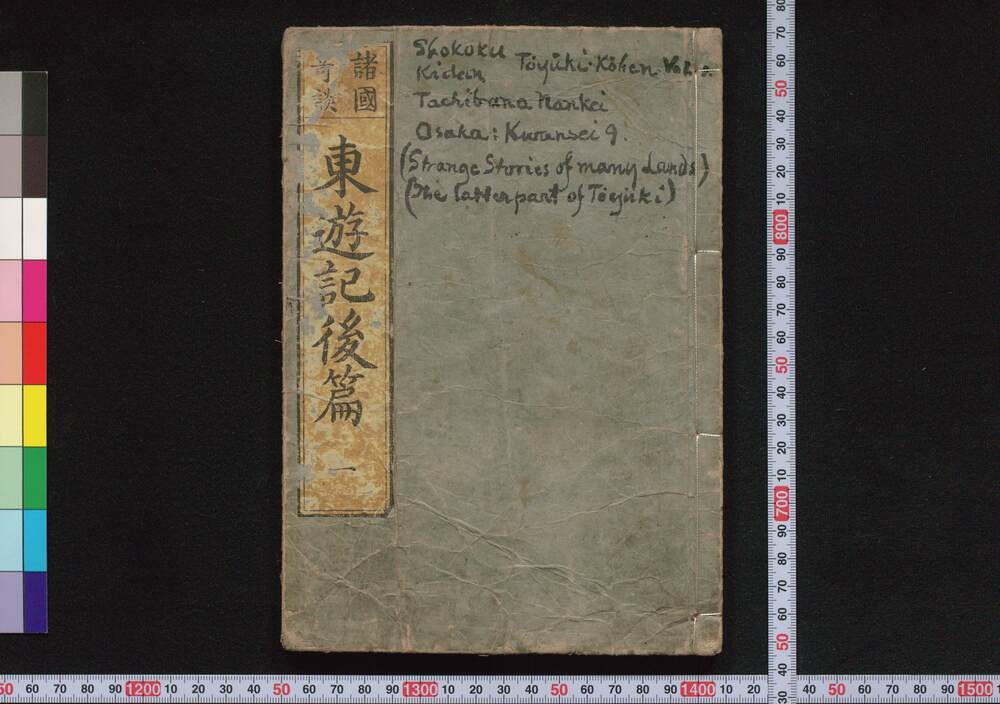 諸國
奇談
東遊記後篇
一
Shokoku
Kidan Tōyūki-Kōhen Vol. 1
Tachibana Nankei
Osaka: Kwansei 9.
(Strange Stories of many Lands)
(The latter part of Tōyūki)
80
70
60
50
40
30
20
10
800
90
80
70
60
50
40
30
20
10
700
90
80
70
60
50
40
30
50 60 70 80 90 1200 10 20 30 40 50 60 70 80 90 1300 10 20 30 40 50 60 70 80 90 1400 10 20 30 40 50 60 70 80 90 1500